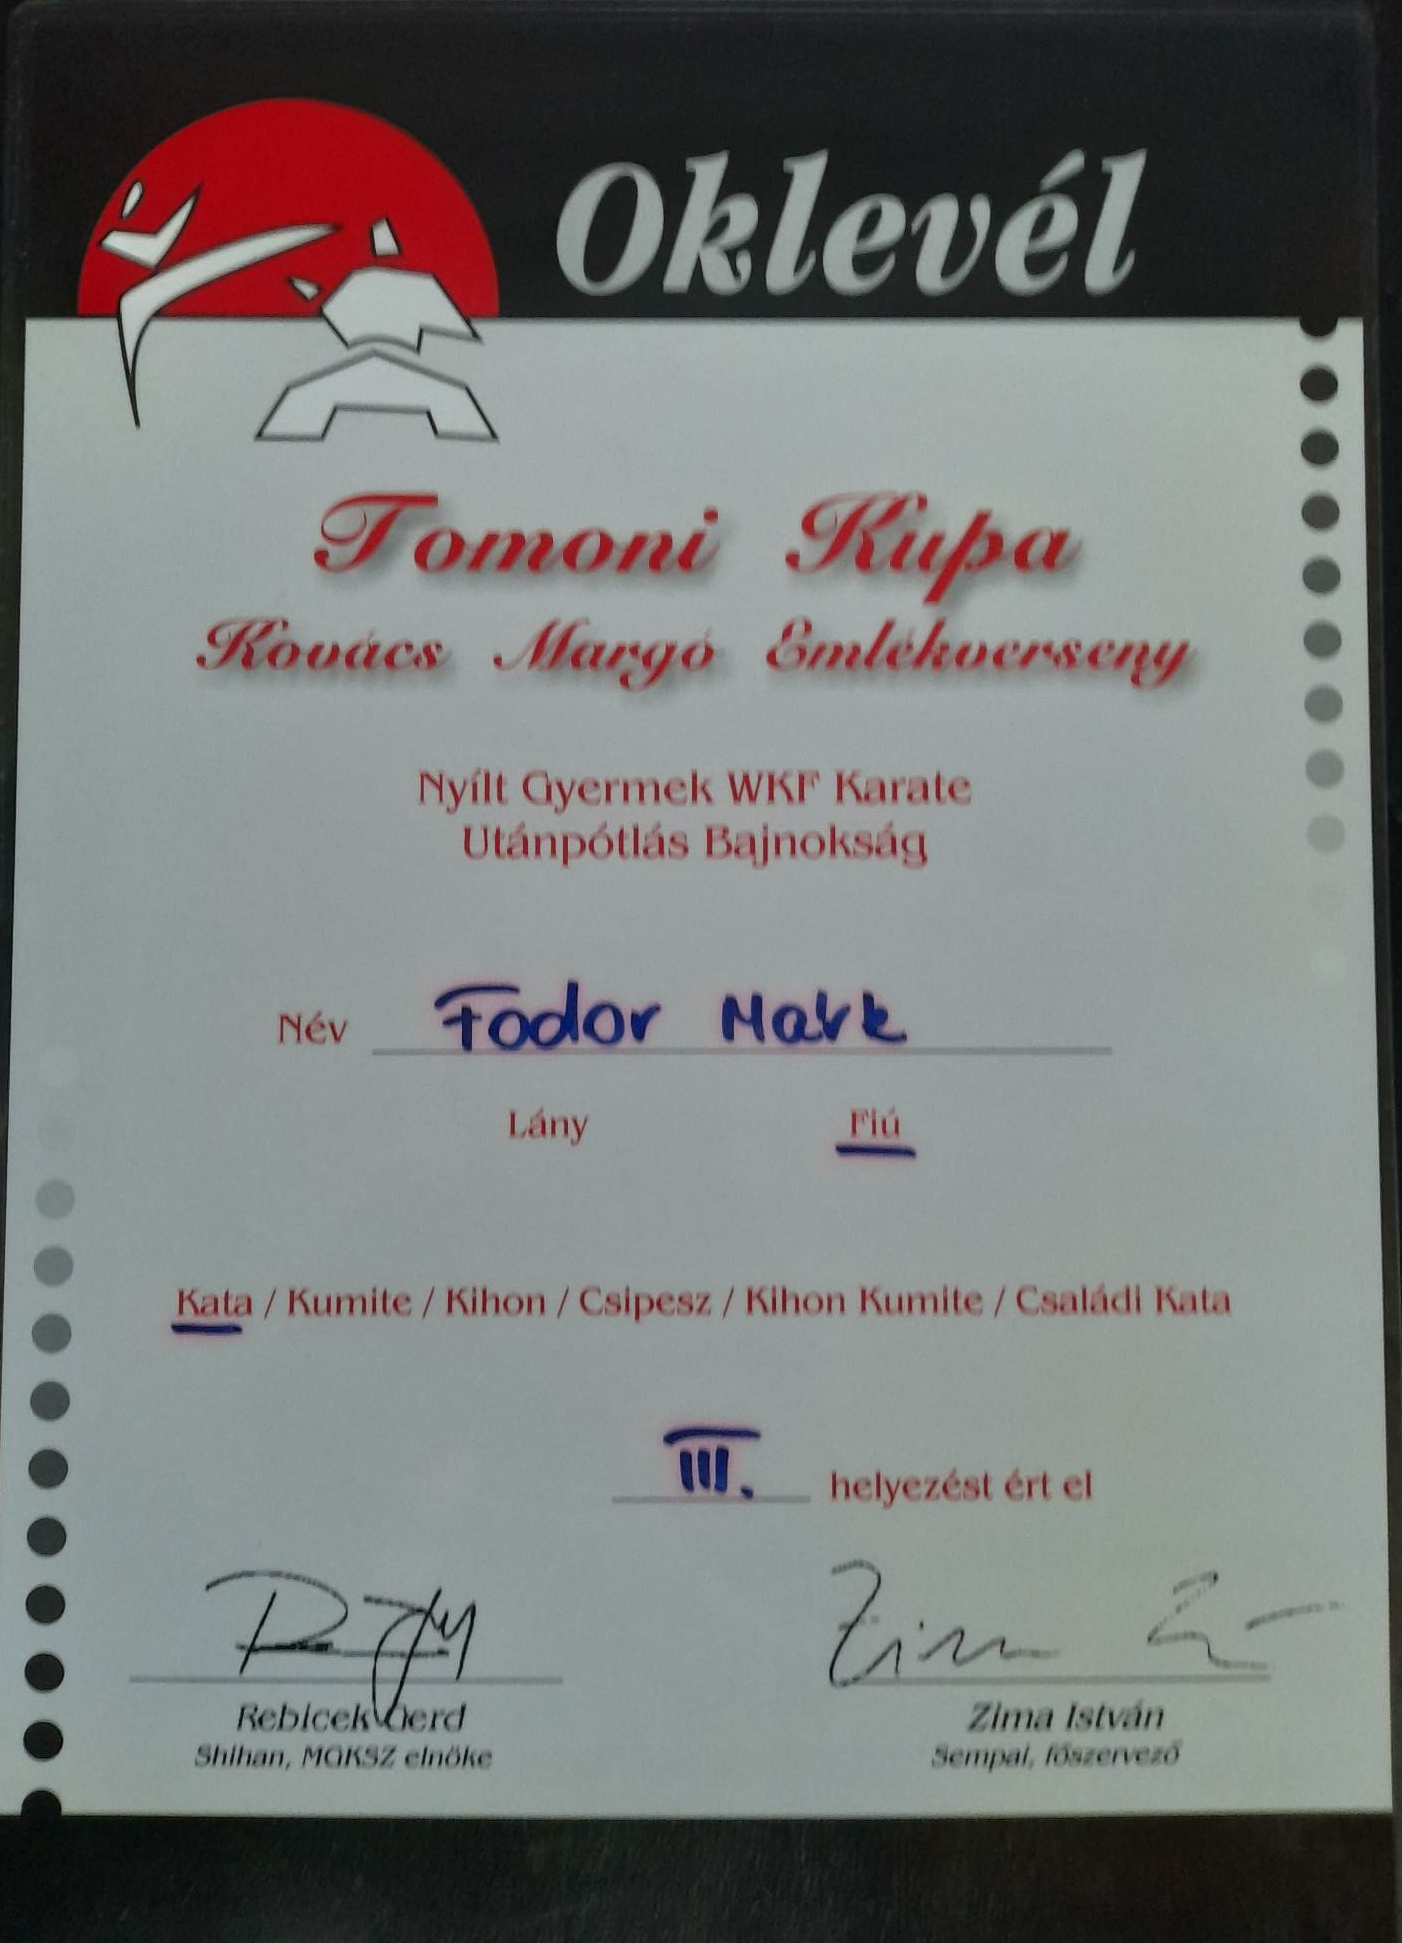 Oklevél
Tomoni Kupa
Kovács Margó Emlékverseny
Nyílt Gyermek WKF Karate
Utánpótlás Bajnokság
Név Fodor Mark
Lány Fiú
Kata / Kumite / Kihon / Csipesz / Kihon Kumite / Családi Kata
III. helyezést ért el
Rebicek Gerd Zima István
Shihan, MGKSZ elnöke Sempai, főszervező